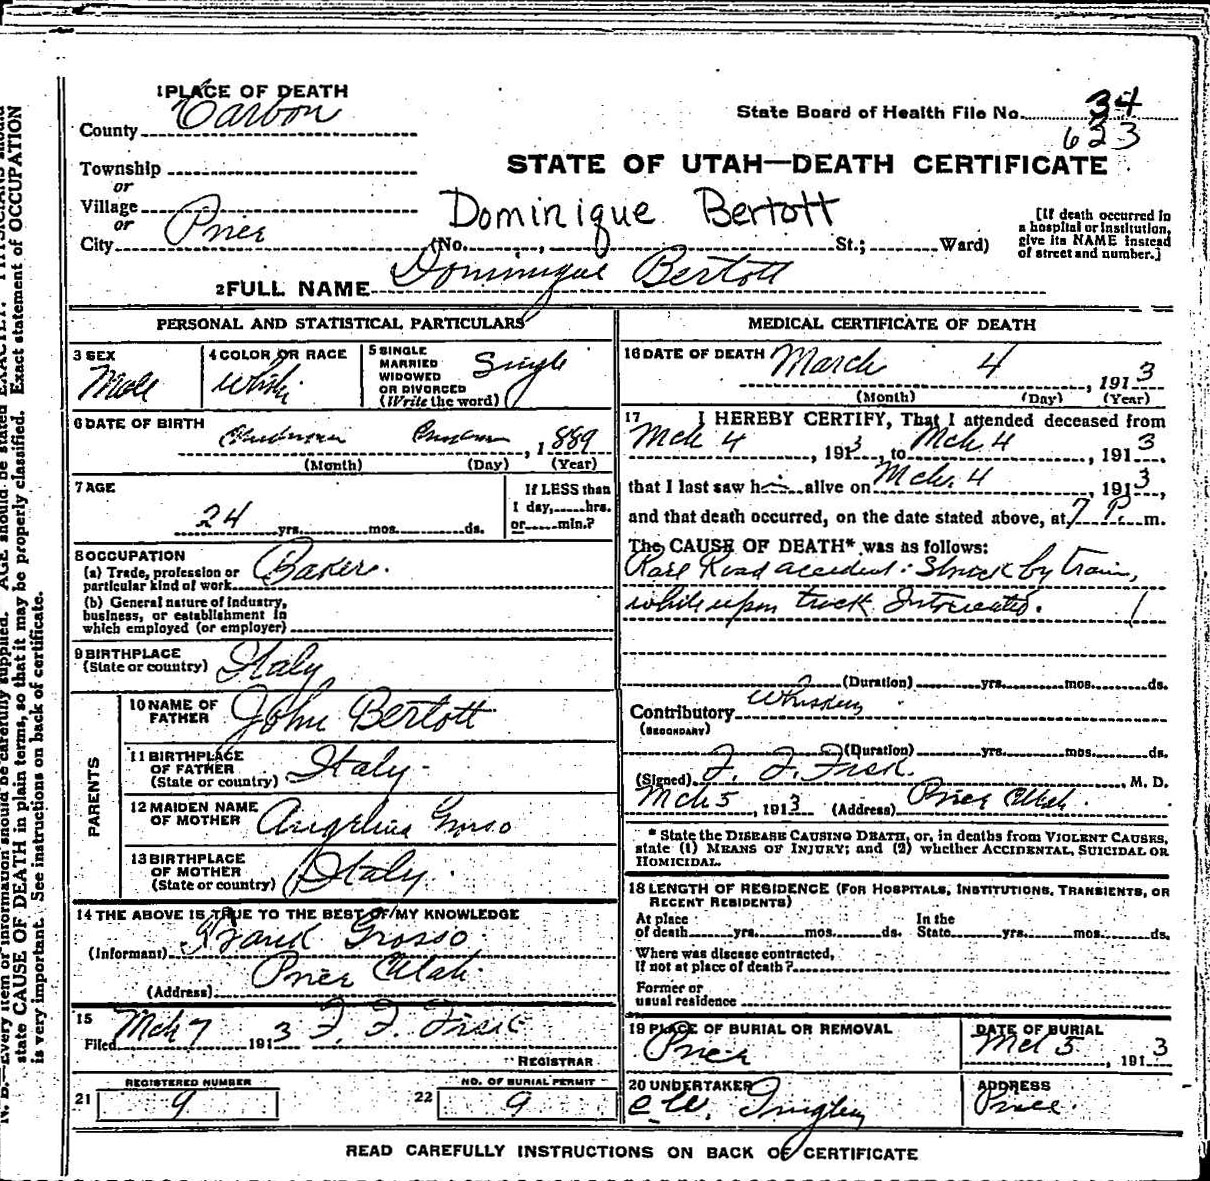 1 PLACE OF DEATH
County Carbon
State Board of Health File No. 34
623
Township
or
STATE OF UTAH—DEATH CERTIFICATE
Village
or
Dominique Bertott
City Price (No. , St.; Ward)
[If death occurred in
a hospital or institution,
give its NAME instead
of street and number.]
2 FULL NAME Dominique Bertott
PERSONAL AND STATISTICAL PARTICULARS
3 SEX
Male
4 COLOR OR RACE
White
5 SINGLE
MARRIED
WIDOWED
OR DIVORCED
(Write the word)
Single
6 DATE OF BIRTH
, 1889
(Month) (Day) (Year)
7 AGE
24 yrs. mos. ds.
If LESS than
1 day, hrs.
or min.?
8 OCCUPATION
(a) Trade, profession or
particular kind of work Baker.
(b) General nature of industry,
business, or establishment in
which employed (or employer)
9 BIRTHPLACE
(State or country) Italy
PARENTS
10 NAME OF
FATHER John Bertott
11 BIRTHPLACE
OF FATHER
(State or country) Italy.
12 MAIDEN NAME
OF MOTHER Angelina Grosso
13 BIRTHPLACE
OF MOTHER
(State or country) Italy.
14 THE ABOVE IS TRUE TO THE BEST OF MY KNOWLEDGE
(Informant) Frank Grosso.
(Address) Price Utah.
15
Filed Mch 7 1913 F. F. Fisk
REGISTRAR
REGISTERED NUMBER
21 9
NO. OF BURIAL PERMIT
22 9
MEDICAL CERTIFICATE OF DEATH
16 DATE OF DEATH March 4, 1913
(Month) (Day) (Year)
17 I HEREBY CERTIFY, That I attended deceased from
Mch 4, 1913, to Mch 4, 1913,
that I last saw him alive on Mch. 4, 1913,
and that death occurred, on the date stated above, at 7 P. m.
The CAUSE OF DEATH* was as follows:
Rail Road accident: Struck by train,
while upon track Intoxicated.
(Duration) yrs. mos. ds.
Contributory Whiskey
(SECONDARY)
(Duration) yrs. mos. ds.
(Signed) F. F. Fisk. M. D.
Mch 5, 1913 (Address) Price Utah.
* State the DISEASE CAUSING DEATH, or, in deaths from VIOLENT CAUSES,
state (1) MEANS OF INJURY; and (2) whether ACCIDENTAL, SUICIDAL OR
HOMICIDAL.
18 LENGTH OF RESIDENCE (FOR HOSPITALS, INSTITUTIONS, TRANSIENTS, OR
RECENT RESIDENTS)
At place
of death yrs. mos. ds.
In the
State yrs. mos. ds.
Where was disease contracted,
if not at place of death?
Former or
usual residence
19 PLACE OF BURIAL OR REMOVAL
Price
DATE OF BURIAL
Mch 5, 1913
20 UNDERTAKER
C W.
ADDRESS
Price.
READ CAREFULLY INSTRUCTIONS ON BACK OF CERTIFICATE
state CAUSE OF DEATH in plain terms, so that it may be properly classified. Exact statement of OCCUPATION
is very important. See instructions on back of certificate.